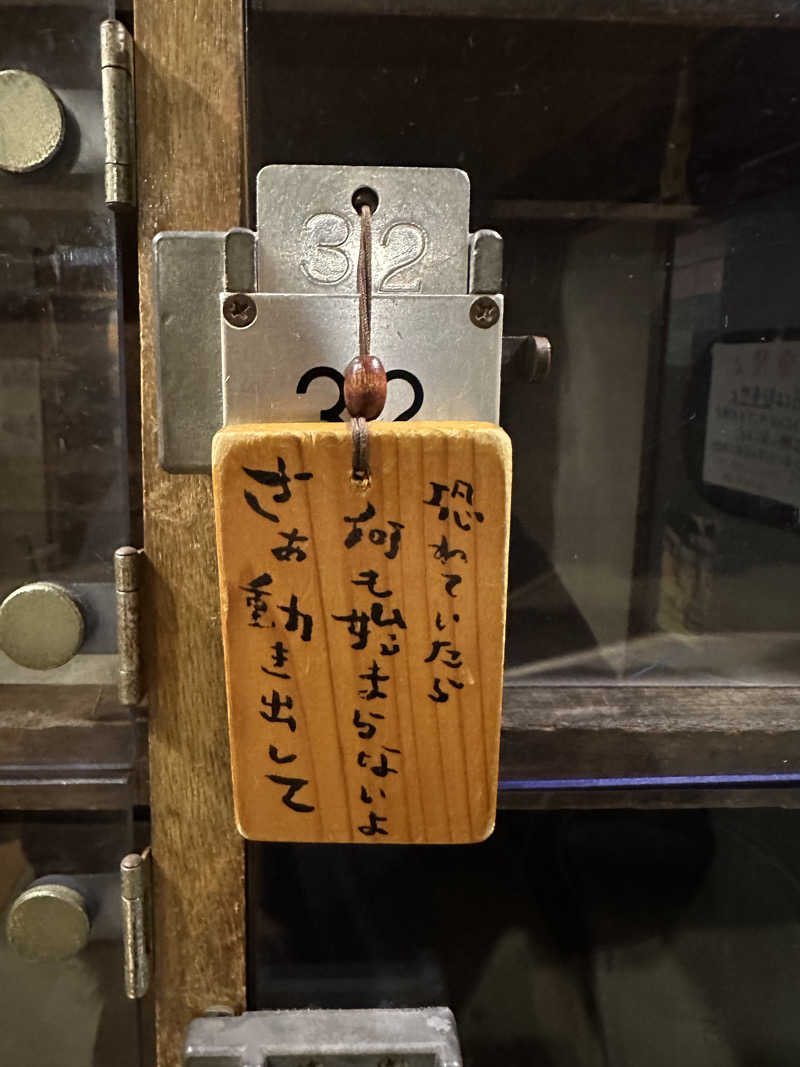 32
32
恐れていたら
何も始まらないよ
さあ動き出して